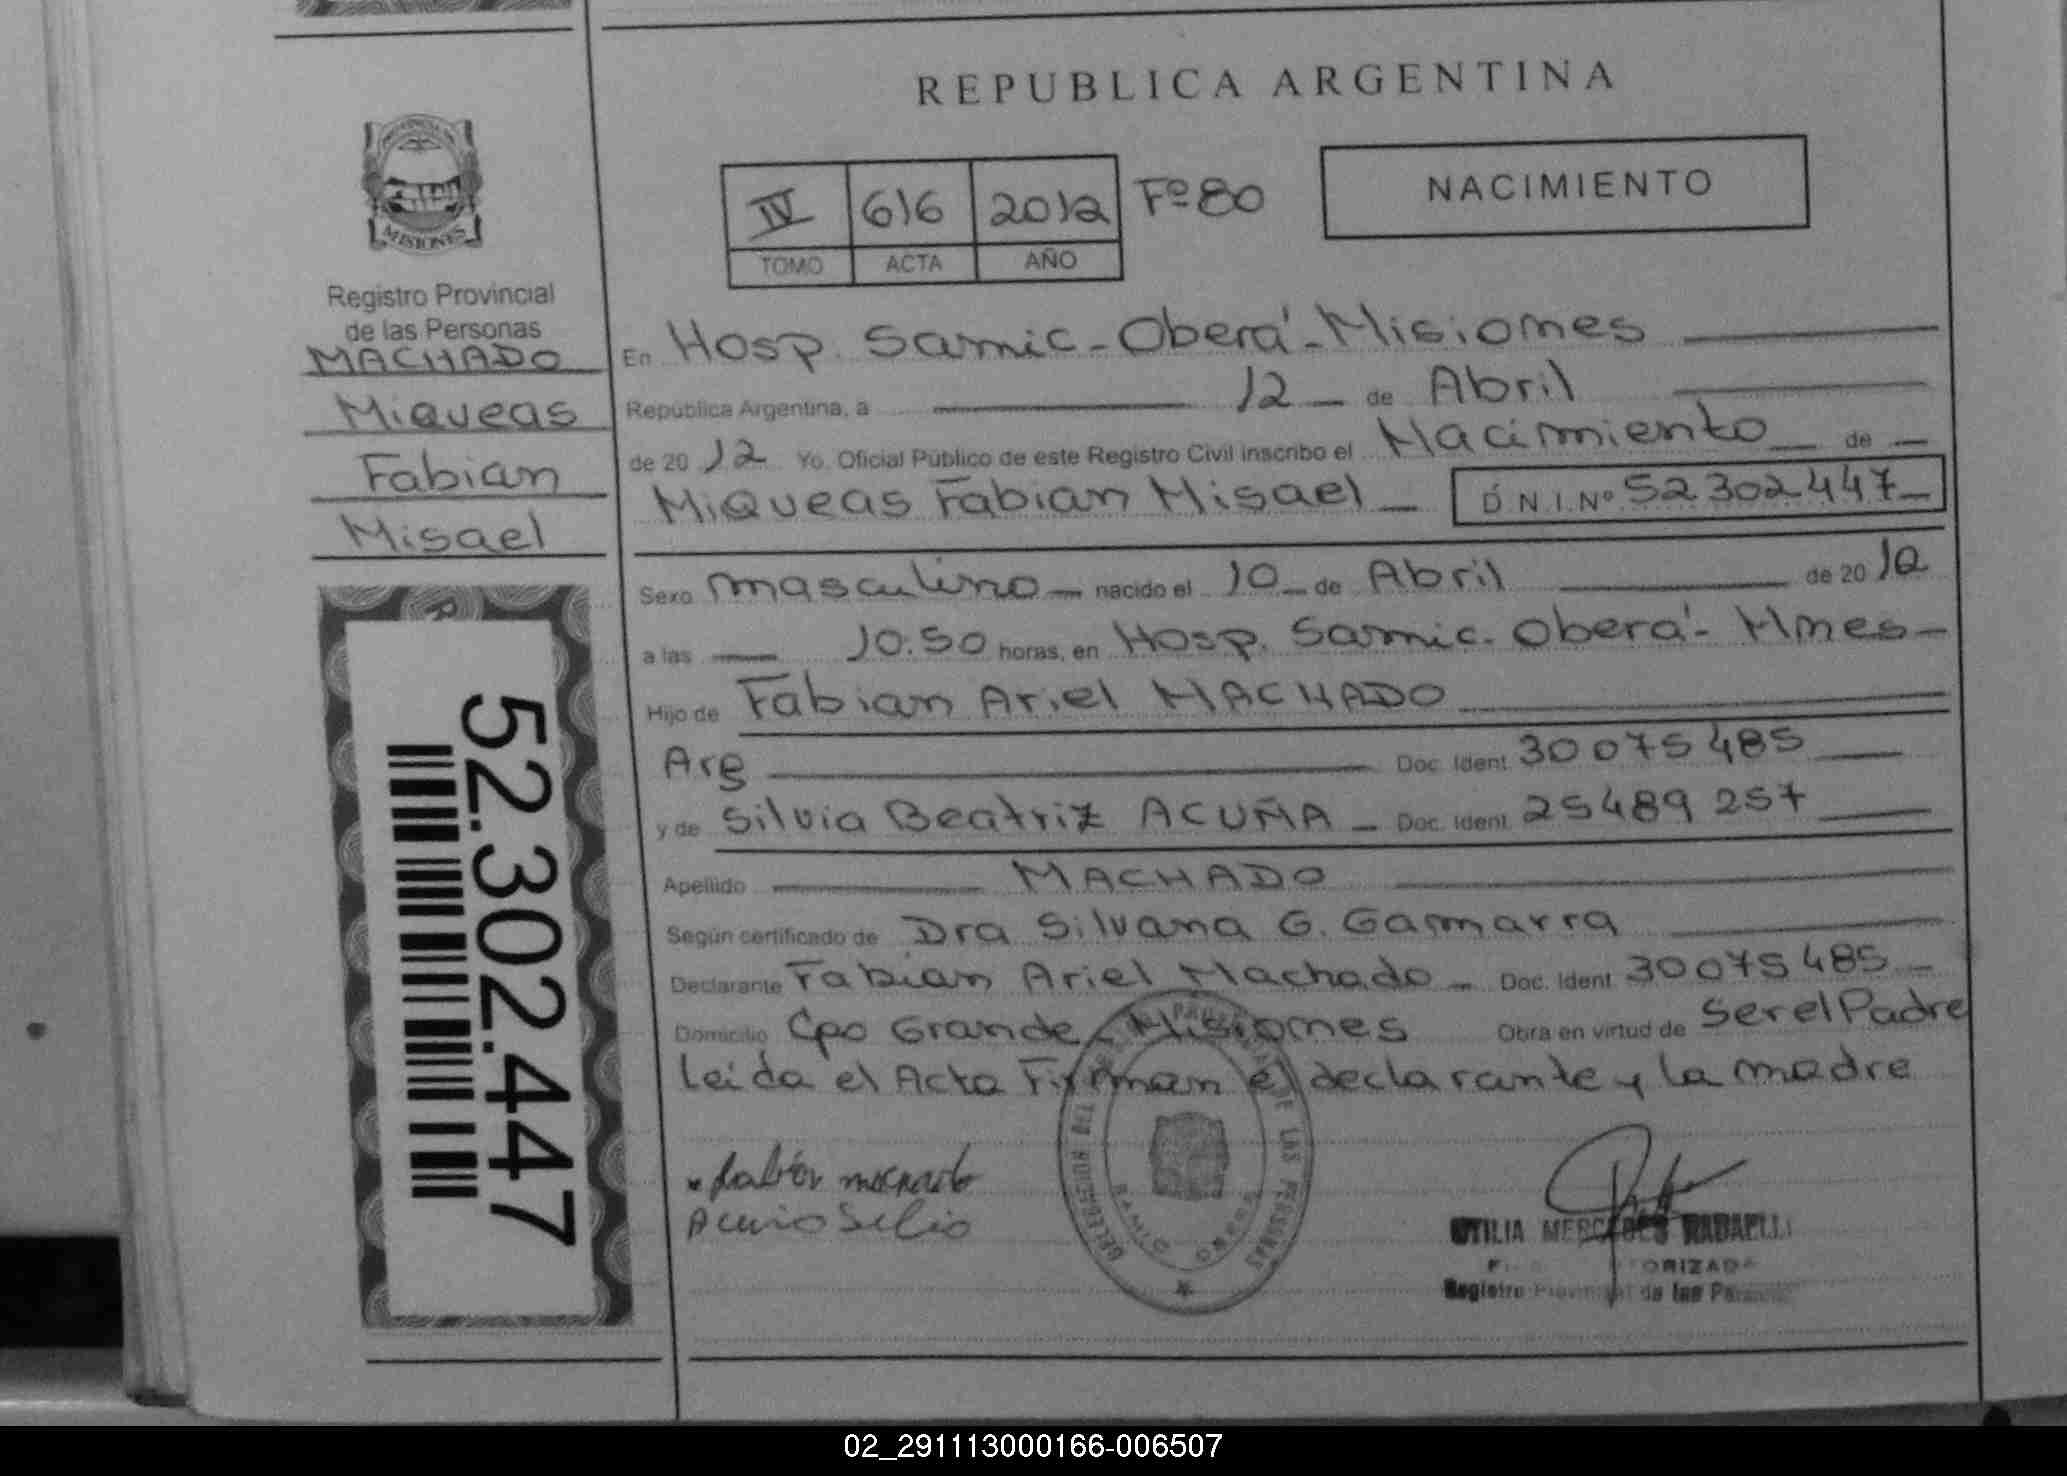 REPUBLICA ARGENTINA
NACIMIENTO
IV 616 2012 Fº 80
TOMO ACTA AÑO
MISIONES
Registro Provincial
de las Personas
MACHADO
Miqueas
Fabian
Misael
52.302.447
En Hosp. Samic - Oberá - Misiones
República Argentina, a 12 de Abril
de 20 12 Yo, Oficial Público de este Registro Civil inscribo el Nacimiento de
Miqueas Fabian Misael D.N.I.Nº 52 302 447
Sexo masculino nacido el 10 de Abril de 20 12
a las 10:50 horas, en Hosp. Samic - Oberá - Mnes
Hijo de Fabian Ariel MACHADO
Arg Doc. Ident 30 075 485
y de Silvia Beatriz ACUÑA Doc. Ident 25 489 257
Apellido MACHADO
Según certificado de Dra Silvana G. Gamarra
Declarante Fabian Ariel Machado Doc. Ident 30 075 485
Domicilio Cpo Grande - Misiones Obra en virtud de Ser el Padre
leida el Acta Firman el declarante y la madre
machado
MERCEDES
Registro Provincial de las
02_291113000166-006507